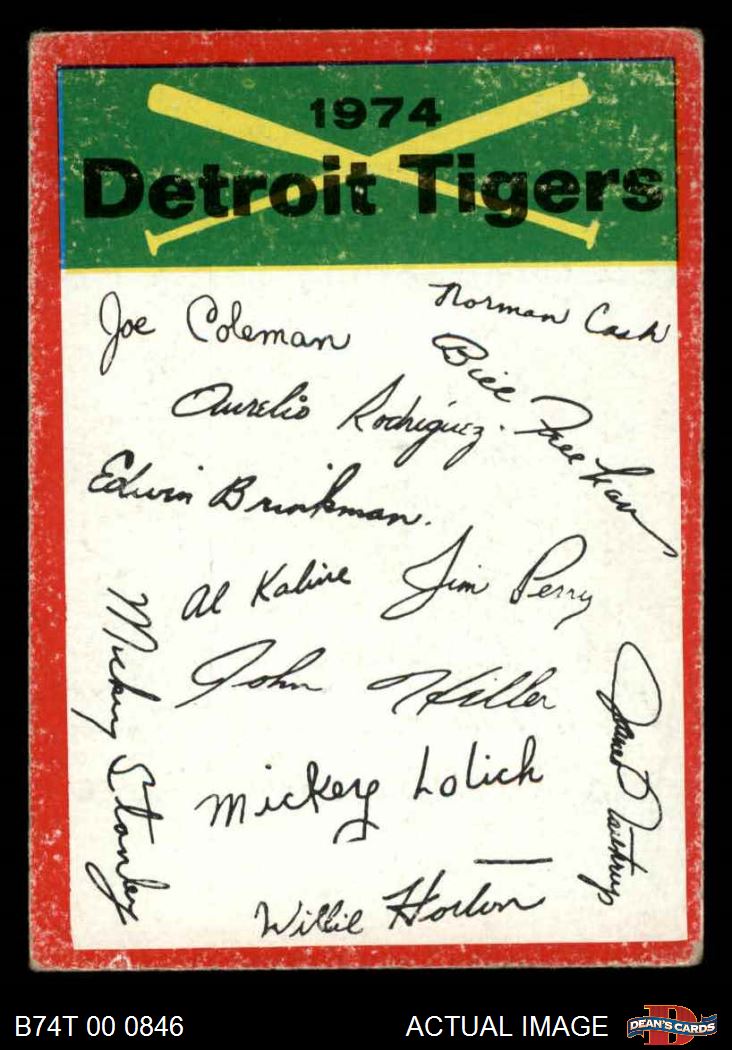 1974
Detroit Tigers
Joe Coleman
Norman Cash
Bill Freehan
Aurelio Rodriguez.
Edwin Brinkman.
Al Kaline
Jim Perry
Mickey Stanley
John Hiller
James Northrup
Mickey Lolich
Willie Horton
B74T 00 0846
ACTUAL IMAGE
D
DEAN'S CARDS